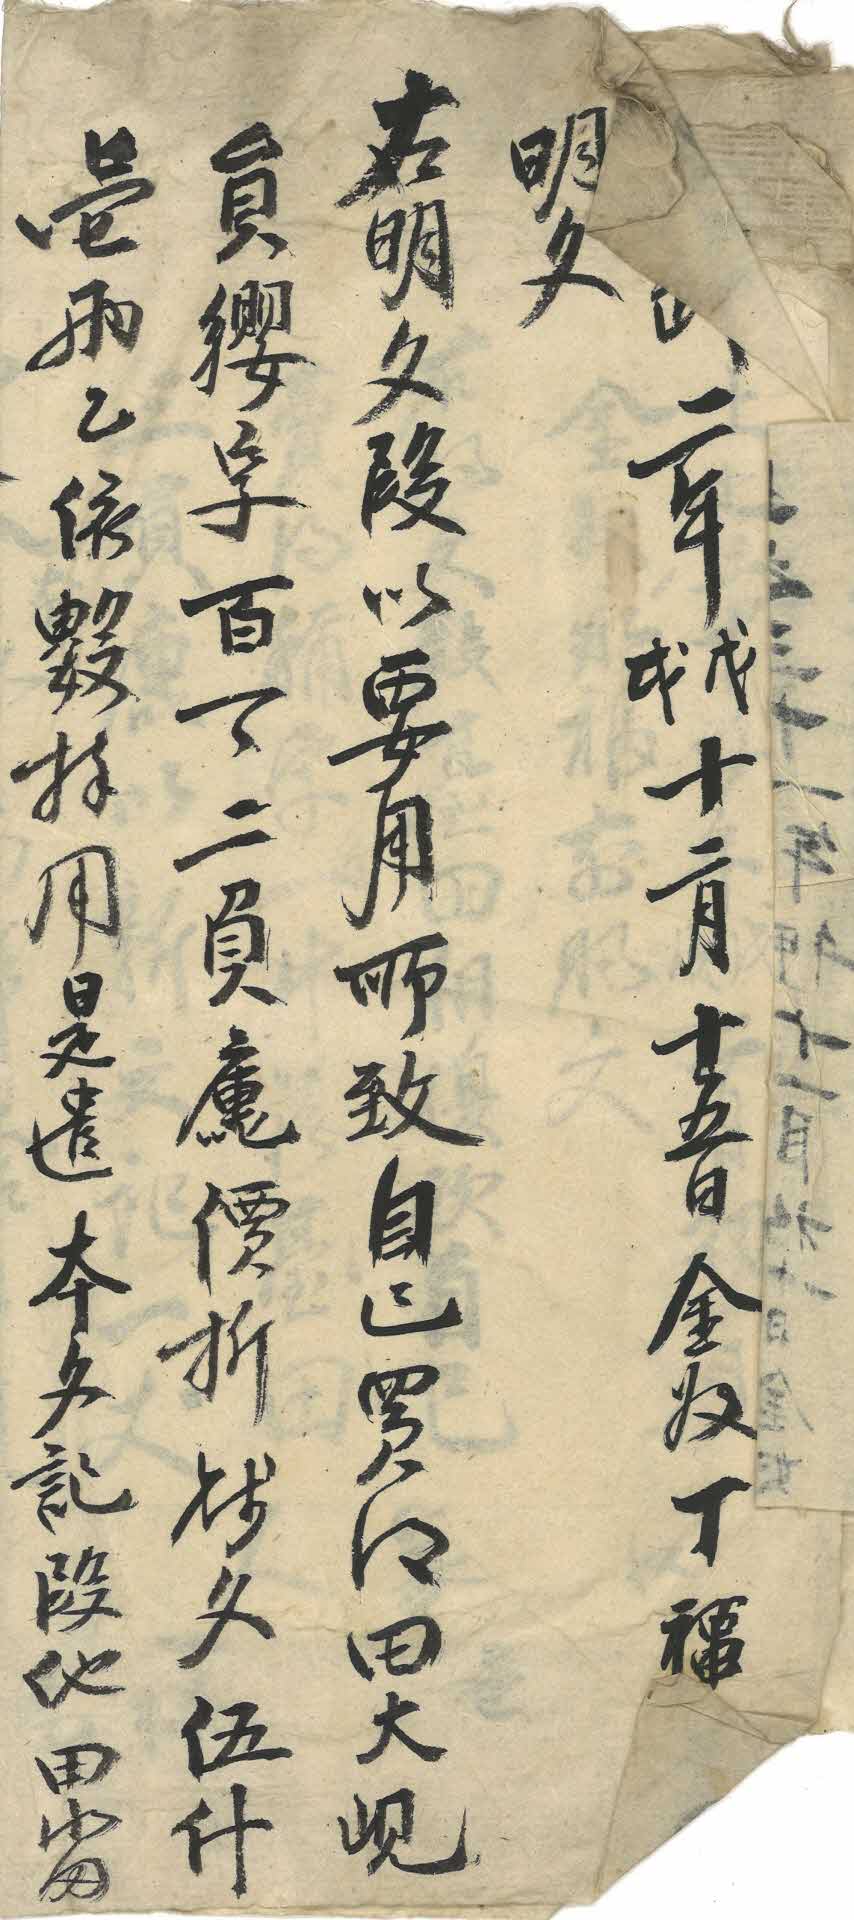 二年戊戌十二月十五日金奴丁福
明文
右明文段以要用所致自己買得田大峴
員纓字百二負價折錢文伍什
壹兩乙依數捧用是遣本文記段他田畓